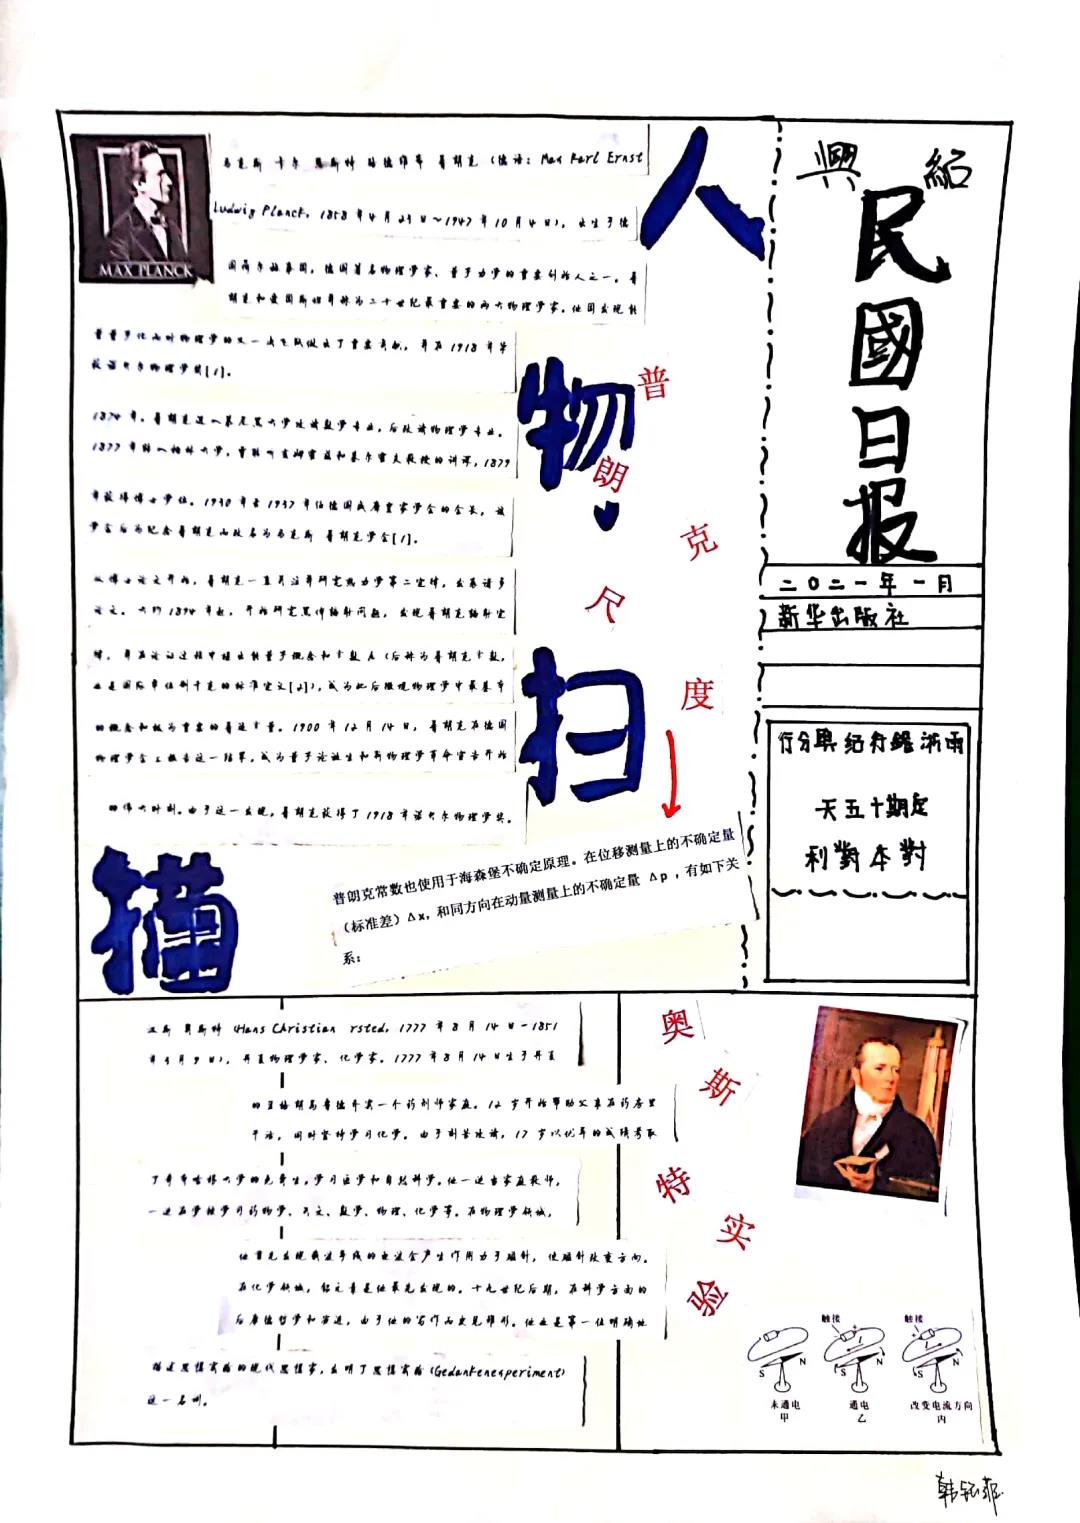 紹興
民國日报
二〇二一年一月
新华出版社
雨浙錦行紹興分行
定期十五天
對本對利
人物扫描
MAX PLANCK
马克斯 卡尔 恩斯特 路德维希 普朗克 (德语: Max Karl Ernst
Ludwig Planck, 1858 年 4 月 23 日~1947 年 10 月 4 日), 出生于德
国荷尔施泰因, 德国著名物理学家、量子力学的重要创始人之一。普
朗克和爱因斯坦并称为二十世纪最重要的两大物理学家。他因发现能
量量子化而对物理学的又一次飞跃做出了重要贡献, 并在 1918 年荣
获诺贝尔物理学奖[1]。
1874 年, 普朗克进入慕尼黑大学攻读数学专业, 后改读物理学专业。
1877 年转入柏林大学, 曾聆听亥姆霍兹和基尔霍夫教授的讲课, 1879
年获得博士学位。1930 年至 1937 年任德国威廉皇家学会的会长, 该
学会后为纪念普朗克而改名为马克斯 普朗克学会[1]。
从博士论文开始, 普朗克一直关注并研究热力学第二定律, 发表诸多
论文。大约 1894 年起, 开始研究黑体辐射问题, 发现普朗克辐射定
律, 并在论证过程中提出能量子概念和常数 h (后称为普朗克常数,
也是国际单位制千克的标准定义[2]), 成为此后微观物理学中最基本
的概念和极为重要的普适常量。1900 年 12 月 14 日, 普朗克在德国
物理学会上报告这一结果, 成为量子论诞生和新物理学革命宣告开始
的伟大时刻。由于这一发现, 普朗克获得了 1918 年诺贝尔物理学奖。
普朗克尺度
普朗克常数也使用于海森堡不确定原理。在位移测量上的不确定量
（标准差）Δx, 和同方向在动量测量上的不确定量 Δp , 有如下关
系:
汉斯 奥斯特 (Hans Christian rsted, 1777 年 8 月 14 日-1851
年 3 月 9 日), 丹麦物理学家、化学家。1777 年 8 月 14 日生于丹麦
的兰格朗岛鲁德乔宾一个药剂师家庭。12 岁开始帮助父亲在药房里
干活, 同时坚持学习化学。由于刻苦攻读, 17 岁以优异的成绩考取
了哥本哈根大学的免费生, 学习医学和自然科学。他一边当家庭教师,
一边在学校学习药物学、天文、数学、物理、化学等。在物理学领域,
他首先发现载流导线的电流会产生作用力于磁针, 使磁针改变方向。
在化学领域, 铝元素是他最先发现的。十九世纪后期, 在科学方面的
后康德哲学和演进, 由于他的写作而突见雏形。他也是第一位明确地
描述思想实验的现代思想家, 发明了思想实验(Gedankenexperiment)
这一名词。
奥斯特实验
触接 触接
N S N S N S
未通电 通电 改变电流方向
甲 乙 丙